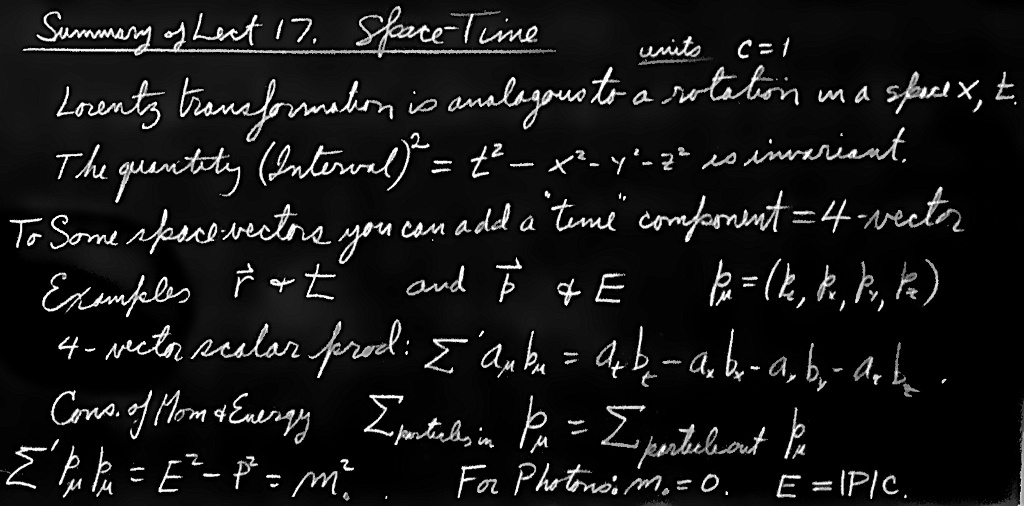 Summary of Lect 17. Space-Time
units c = 1
Lorentz transformation is analagous to a rotation in a space x, t.
The quantity (Interval)² = t² − x² − y² − z² is invariant.
To Some space vectors you can add a "time" component = 4-vector
Examples r⃗ & t and p⃗ & E pμ = (pt, px, py, pz)
4-vector scalar prod: Σ' aμ bμ = at bt − ax bx − ay by − az bz .
Cons. of Mom & Energy Σ particles in pμ = Σ particle out pμ
Σ' pμ pμ = E² − P² = m₀² . For Photons: m₀ = 0. E = |P|c.